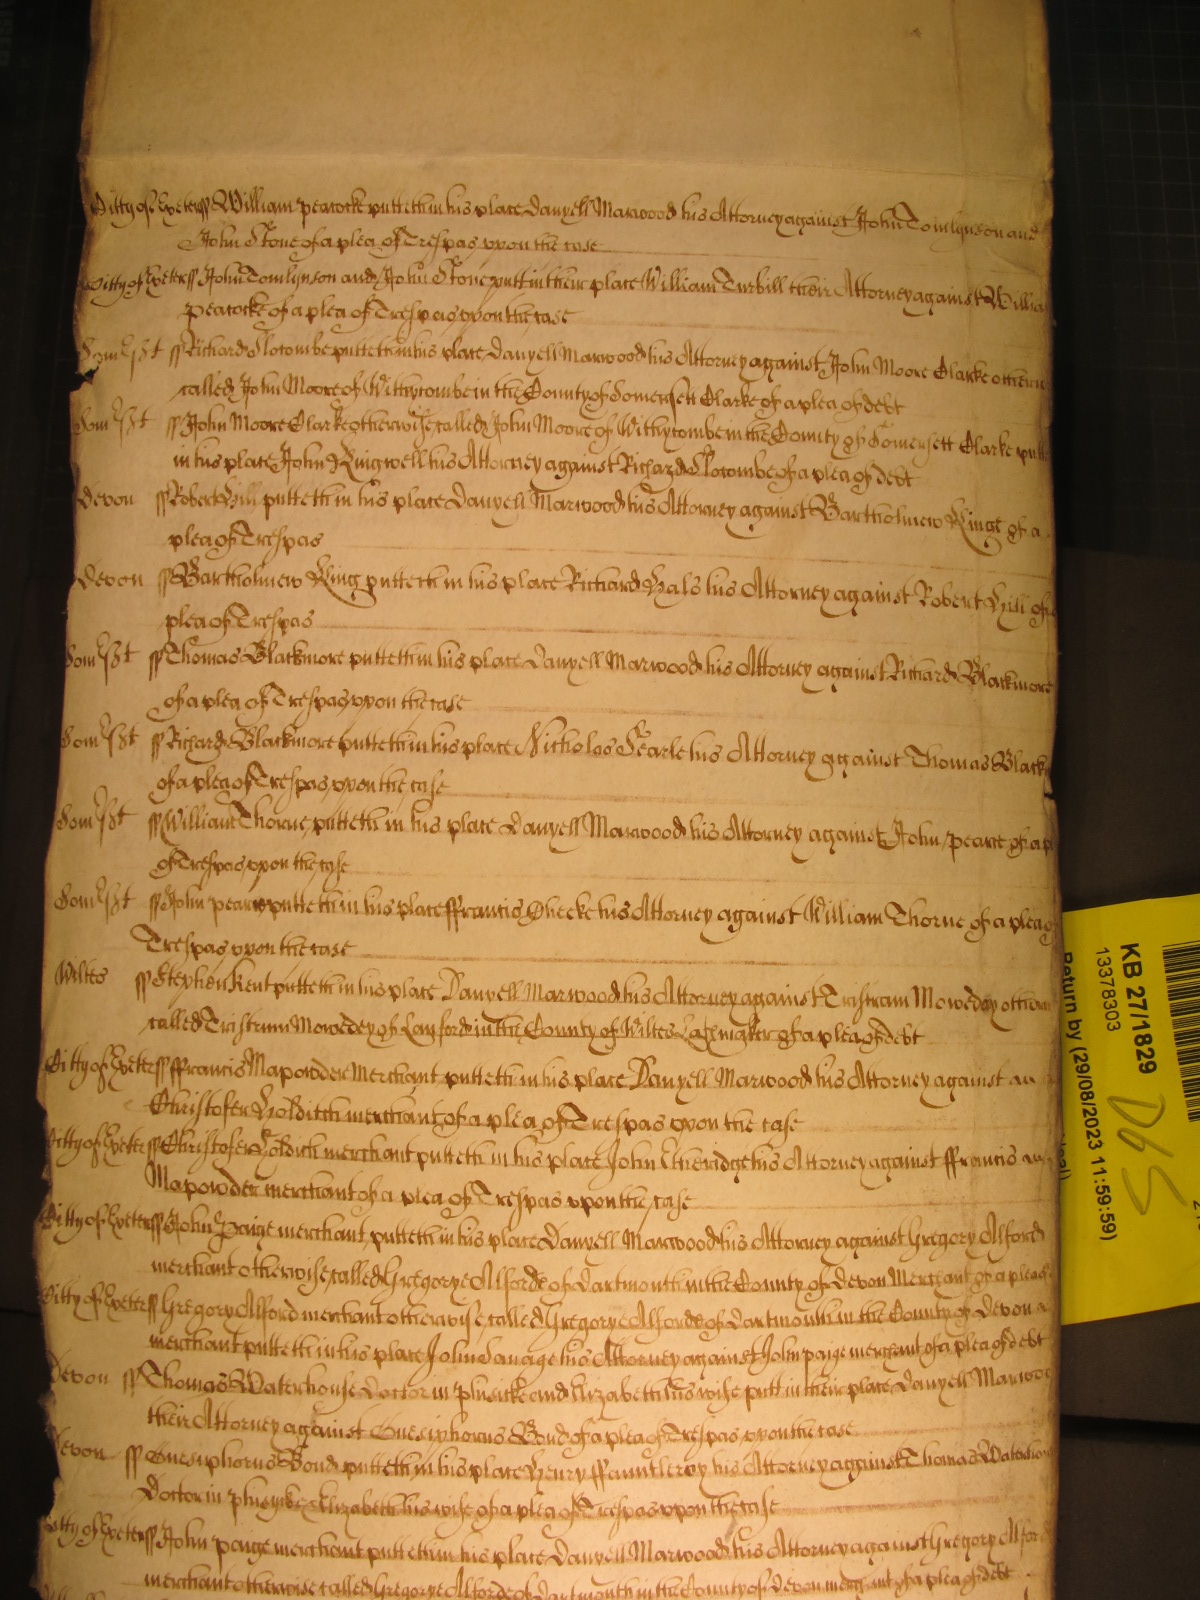 Citty of Exeter ss William Peacocke putteth in his place Danyell Marwood his Attorney against John Tomlynson and
John Stone of a plea of Trespas vpon the case
Citty of Exeter ss John Tomlynson and John Stone putt in their place William Turbill their Attorney against Willia
Peacocke of a plea of Trespas vpon the case
Som'sșt ss Richard Slocombe putteth in his place Danyell Marwood his Attorney against John Moore Clarke otherw
called John Moore of Withycombe in the County of Somersett Clarke of a plea of debt
Som'sșt ss John Moore Clarke otherwise called John Moore of Withycombe in the County of Somersett Clarke putt
in his place John Ringwell his Attorney against Richard Slocombe of a plea of debt
Devon ss Robert Hill putteth in his place Danyell Marwood his Attorney against Bartholmew Kinge of a
plea of Trespas
Devon ss Bartholmew King putteth in his place Richard Hals his Attorney against Robert Hill of
plea of Trespas
Som'sșt ss Thomas Blackmore putteth in his place Danyell Marwood his Attorney against Richard Blackmore
of a plea of Trespas vpon the case
Som'sșt ss Richard Blackmore putteth in his place Nicholas Searle his Attorney against Thomas Black
of a plea of Trespas vpon the case
Som'sșt ss William Thorne putteth in his place Danyell Marwood his Attorney against John Pearce of a p
of Trespas vpon the case
Som'sșt ss John Pearce putteth in his place ffrancis Cheeke his Attorney against William Thorne of a plea of
Trespas vpon the case
Wiltes ss Stephen Kent putteth in his place Danyell Marwood his Attorney against Tristram Mowedey otherw
called Tristrum Mowedey of Langford in the County of Wiltes of a plea of debt
Citty of Exeter ss ffrancis Mapowder Merchant putteth in his place Danyell Marwood his Attorney against an
Christofer Holditch merchant of a plea of Trespas vpon the case
Citty of Exeter ss Christofer Holdich merchant putteth in his place John Etheridge his Attorney against ffrancis an
Mapowder merchant of a plea of Trespas vpon the case
Citty of Exeter ss John Paige merchant putteth in his place Danyell Marwood his Attorney against Gregory Alford
merchant otherwise called Gregorye Alforde of Dartmouth in the County of Devon Merchant of a plea of
Citty of Exeter ss Gregory Alford merchant otherwise called Gregorye Alforde of Dartmouth in the County of Devon a
merchant putteth in his place John Sauage his Attorney against John Paige merchant of a plea of debt
Devon ss Thomas Waterhouse Doctor in Phisicke and Elizabeth his wife putt in their place Danyell Marwoo
their Attorney against Onesiphorus Bond of a plea of Trespas vpon the case
Devon ss Onesiphorus Bond putteth in his place Henry ffauntleroy his Attorney against Thomas Waterhous
Doctor in Phisicke & Elizabeth his wife of a plea of Trespas vpon the case
Citty of Exeter ss John Paige merchant putteth in his place Danyell Marwood his Attorney against Gregory Alfor
merchant otherwise called Gregorye Alforde of Dartmouth in the County of Devon merchant of a plea of debt
KB 27/1829
13378303
Return by (29/08/2023 11:59:59)
D65